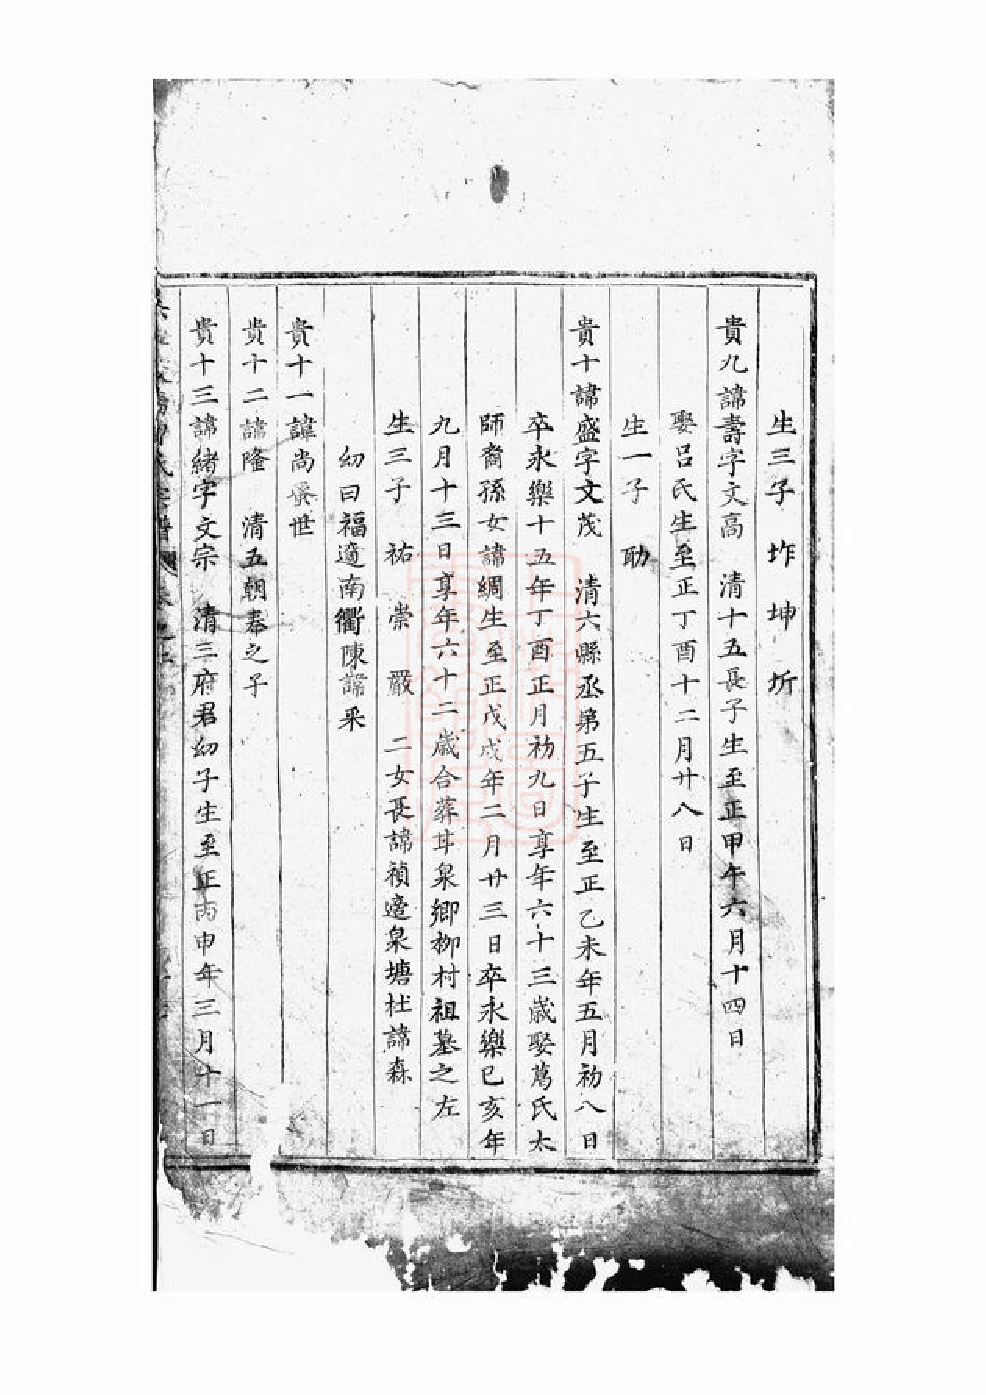 生三子 坤 圻
貴九諱壽字文高 清十五長子生至正甲午六月十四日
娶呂氏生至正丁酉十二月廿八日
生一子 
貴十諱盛字文茂 清六縣丞第五子生至正乙未年五月初八日
卒永樂十五年丁酉正月初九日享年六十三歲娶萬氏太
師裔孫女諱綢生至正戊戌年二月廿三日卒永樂己亥年
九月十三日享年六十二歲合葬甘泉鄉柳村祖墓之左
生三子 祐 崇 嚴 二女長諱禎適泉塘杜諱森
幼曰福適南衢陳諱采
貴十一諱尚 世
貴十二諱隆 清五朝奉之子
貴十三諱緒字文宗 清三府君幼子生至正丙申年三月十一日